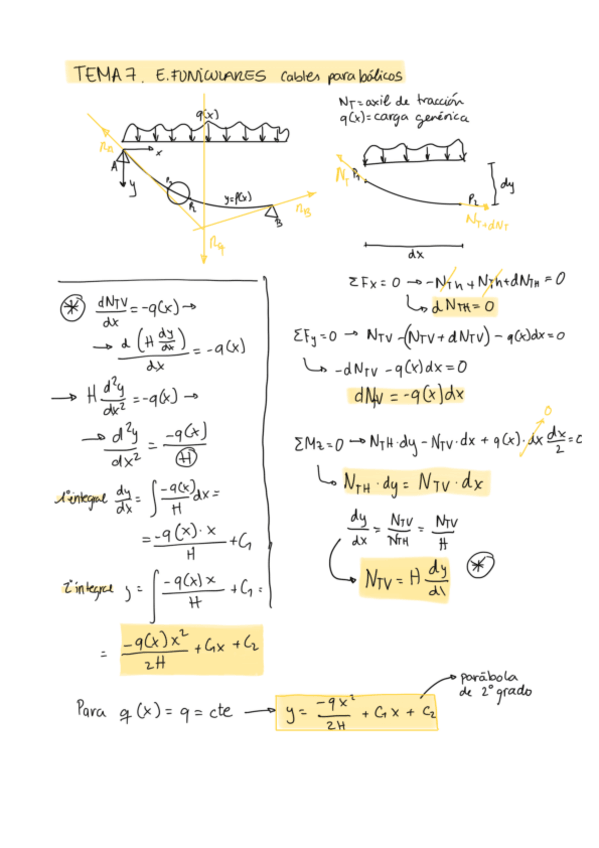 TEMA 7. E. FUNICULARES cables parabólicos
N_T = axil de tracción
q(x) = carga genérica
q(x)
R_A
A
x
y
P_1
P_2
y=f(x)
R_B
B
R_q
N_T
P_1
P_2
dy
N_T+dN_T
dx
ΣFx = 0 → -N_Th + N_Th + dN_TH = 0
↳ dN_TH = 0
ΣFy = 0 → N_TV - (N_TV + dN_TV) - q(x)dx = 0
↳ -dN_TV - q(x)dx = 0
dN_V = -q(x)dx
ΣM_z = 0 → N_TH · dy - N_TV · dx + q(x) · dx dx/2 = 0
0
↳ N_TH · dy = N_TV · dx
dy/dx = N_TV/N_TH = N_TV/H
N_TV = H dy/dx *
* dN_TV/dx = -q(x) →
→ d(H dy/dx)/dx = -q(x)
→ H d²y/dx² = -q(x) →
→ d²y/dx² = -q(x)/H
1ª integral dy/dx = ∫ -q(x)/H dx =
= -q(x)·x/H + C_1
2ª integral y = ∫ -q(x)x/H + C_1 =
= -q(x)x²/2H + C_1x + C_2
Para q(x) = q = cte → y = -qx²/2H + C_1x + C_2
parábola
de 2º grado